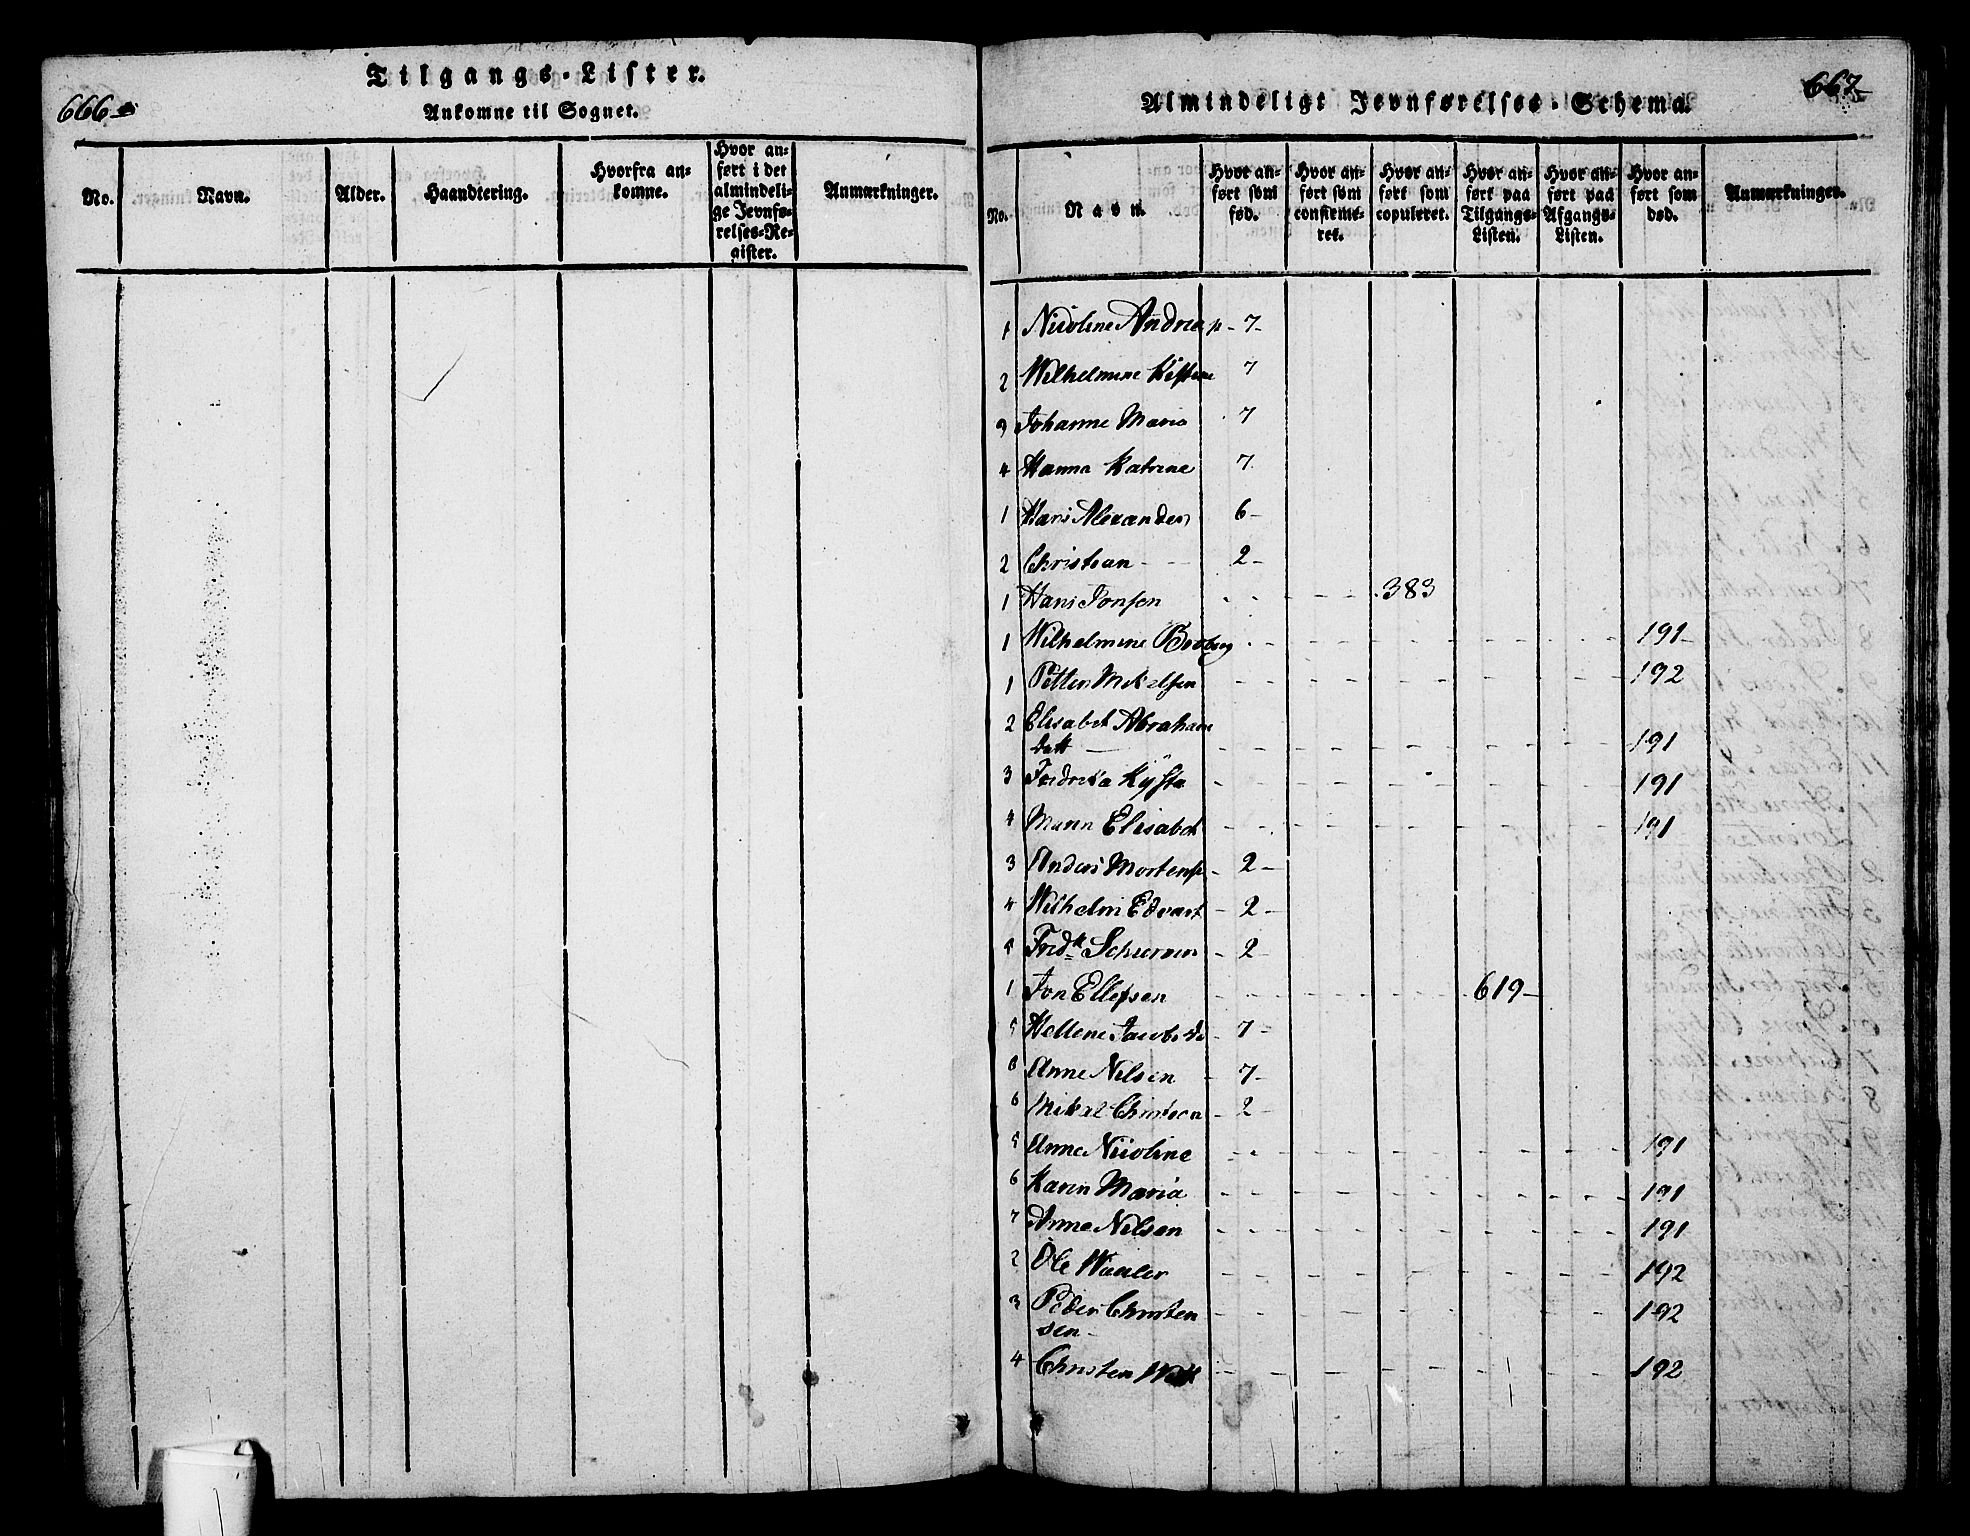 666
Tilgangs-Lister.
Ankomne til Sognet.
No. Navn. Alder. Haandtering. Hvorfra ankomne. Hvor anført i det almindelige Jevnførelses-Register. Anmærkninger.
667
Almindeligt Jevnførelses-Schema.
No. Navn. Hvor anført som fød. Hvor anført som confirmeret. Hvor anført som copuleret. Hvor anført paa Tilgangs-Listen. Hvor anført paa Afgangs-Listen. Hvor anført som død. Anmærkninger.
1 Nicoline Andrea p - 7 -
2 Wilhelmine 7
3 Johanne Maria 7
4 Hanna Katrine 7
1 Hans Alexander 6 -
2 Christian - 2 -
1 Hans Jonsen 383
1 Wilhelmine 191
1 Petter Mikelsen 192
2 Elisabet Abraham
datt 191
3 Fredrika 191
4 Elisabet 191
3 Anders Mortens 2 -
4 Wilhelm Edvart - 2 -
5 Frid. - 2 -
1 Jon Ellefsen 619 -
5 Hellene Jacobsd - 7 -
6 Anne Nilsen - 7 -
6 Mikal Christian - 2 -
5 Anne Nicoline 191
6 Karen Maria 191
7 Anne Nilsen 191
2 Ole 192
3 Peder Christen
sen - 192
4 Christen 192